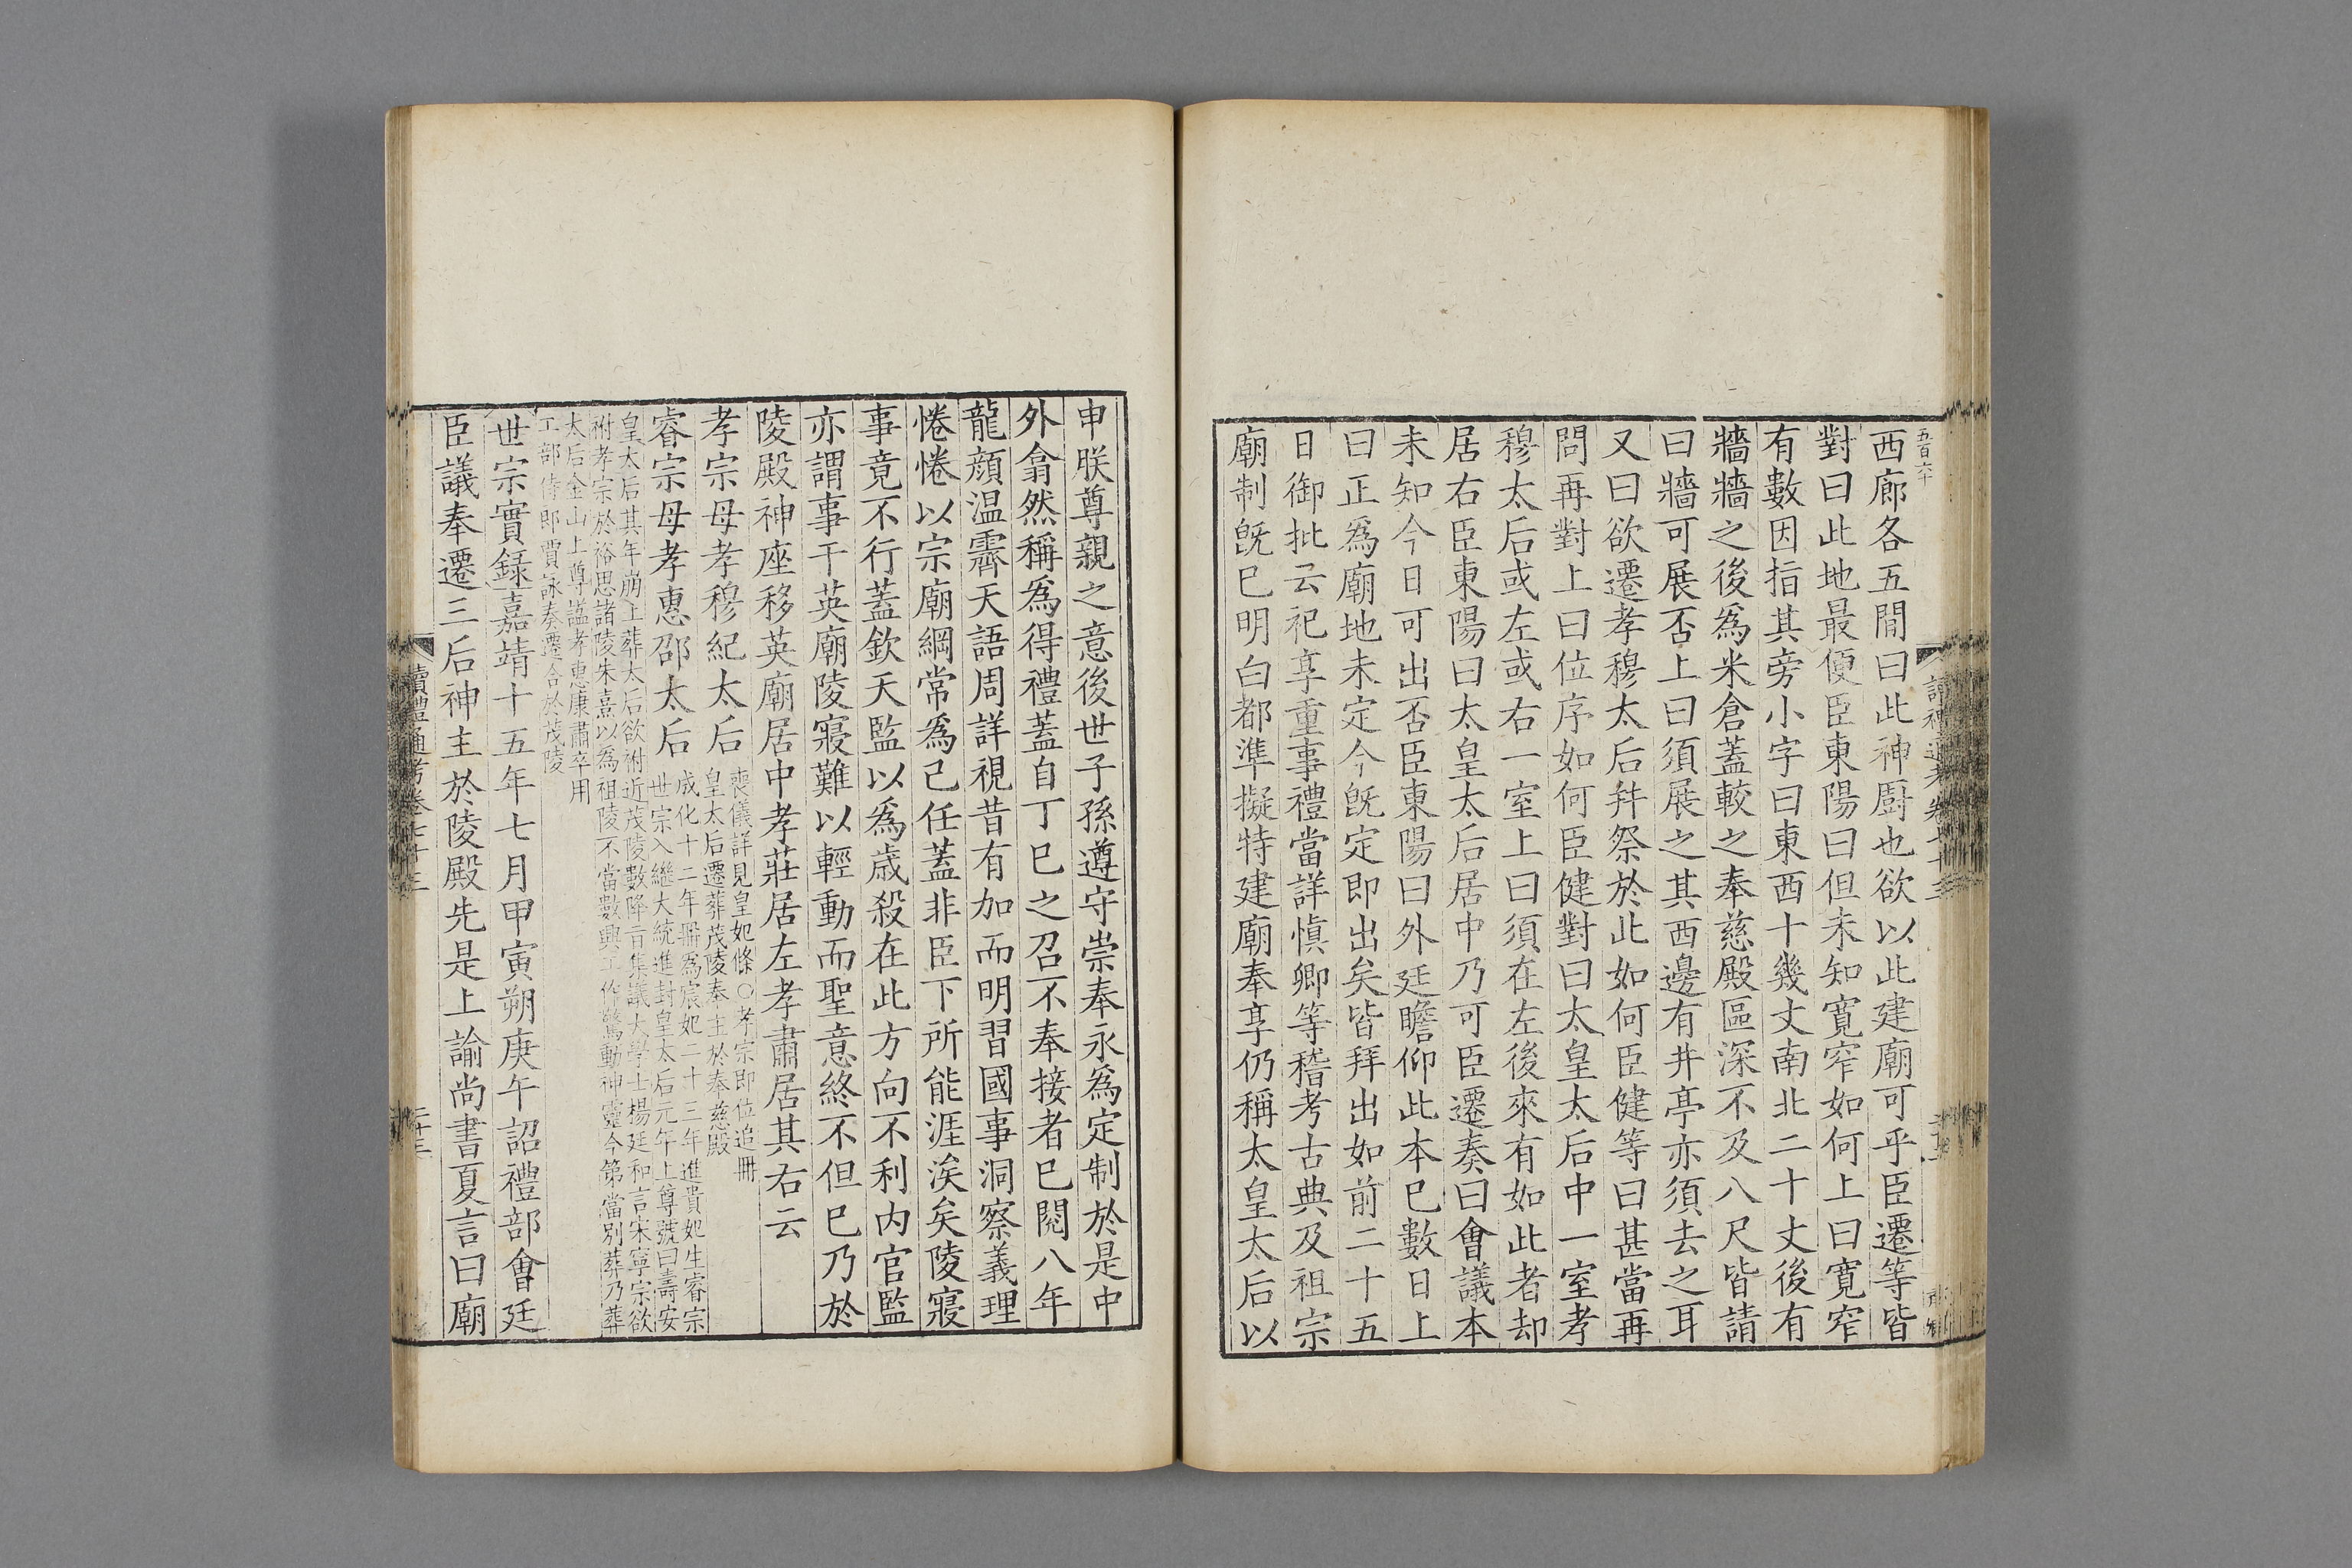 西廊各五間曰此神廚也欲以此建廟可乎臣遷等皆
對曰此地最便臣東陽曰但未知寬窄如何上曰寬窄
有數因指其旁小字曰東西十幾丈南北二十丈後有
牆牆之後爲米倉蓋較之奉慈殿區深不及八尺皆請
曰牆可展否上曰須展之其西邊有井亭亦須去之耳
又曰欲遷孝穆太后幷祭於此如何臣健等曰甚當再
問再對上曰位序如何臣健對曰太皇太后中一室孝
穆太后或左或右一室上曰須在左後來有如此者却
居右臣東陽曰太皇太后居中乃可臣遷奏曰會議本
未知今日可出否臣東陽曰外廷瞻仰此本已數日上
曰正爲廟地未定今旣定即出矣皆拜出如前二十五
日御批云祀享重事禮當詳愼卿等稽考古典及祖宗
廟制旣已明白都準擬特建廟奉享仍稱太皇太后以
申朕尊親之意後世子孫遵守崇奉永爲定制於是中
外翕然稱爲得禮蓋自丁巳之召不奉接者已閱八年
龍顔温霽天語周詳視昔有加而明習國事洞察義理
惓惓以宗廟綱常爲己任蓋非臣下所能涯涘矣陵寢
事竟不行蓋欽天監以爲歳殺在此方向不利内官監
亦謂事干英廟陵寢難以輕動而聖意終不但已乃於
陵殿神座移英廟居中孝莊居左孝肅居其右云
孝宗母孝穆紀太后
喪儀詳見皇妃條○孝宗即位追冊
皇太后遷葬茂陵奉主於奉慈殿
睿宗母孝惠邵太后
成化十二年冊爲宸妃二十三年進貴妃生睿宗
世宗入繼大統進封皇太后元年上尊號曰壽安
皇太后其年崩上葬太后欲祔近茂陵數降旨集議大學士楊廷和言宋寧宗欲
祔孝宗於裕思諸陵朱熹以爲祖陵不當數興工作驚動神靈今第當別葬乃葬
太后金山上尊諡孝惠康肅卒用
工部侍郎賈詠奏遷合於茂陵
世宗實録嘉靖十五年七月甲寅朔庚午詔禮部會廷
臣議奉遷三后神主於陵殿先是上諭尚書夏言曰廟
讀禮通考卷七十三
二十三